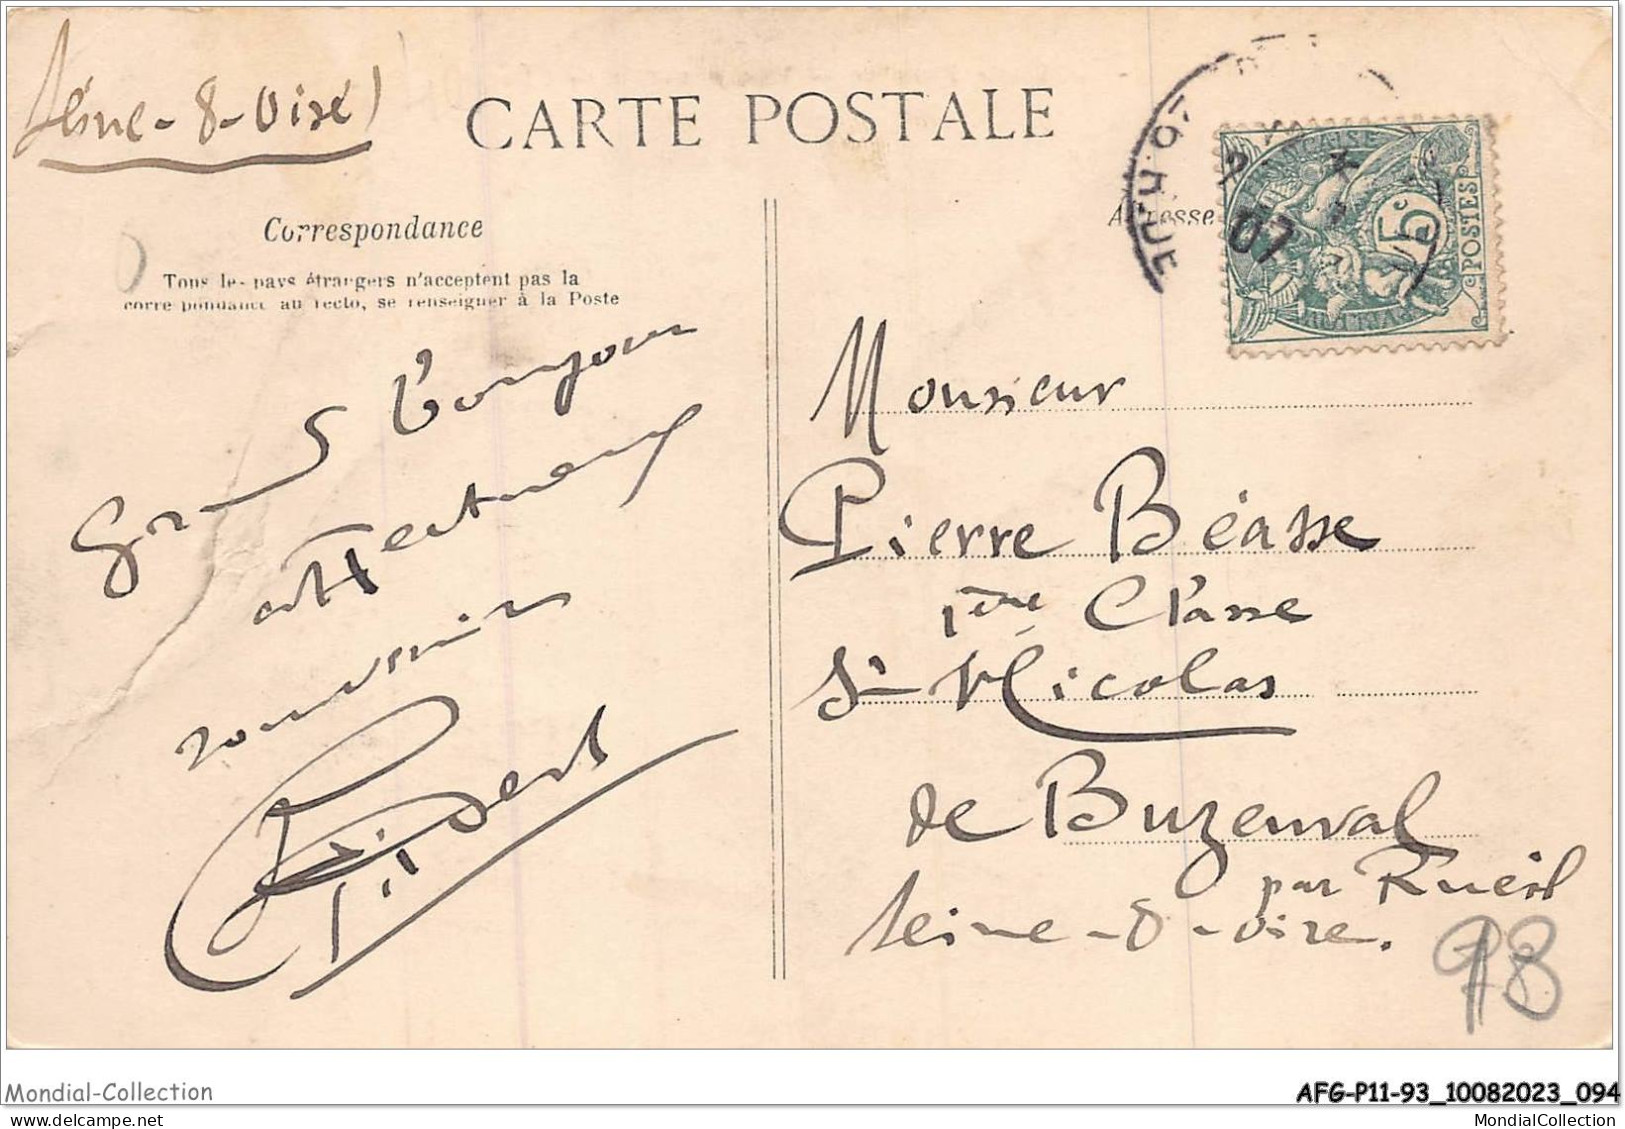 Seine-&-Oise
CARTE POSTALE
Correspondance
Tous les pays étrangers n'acceptent pas la
correspondance au recto, se renseigner à la Poste
Adresse
07
5c
POSTES
bonjour
affectueux
souvenir
Monsieur
Pierre Béasse
1ère Classe
St Nicolas
de Buzenval
par Rueil
Seine-&-Oise.
98
Mondial-Collection
AFG-P11-93_10082023_094
MondialCollection